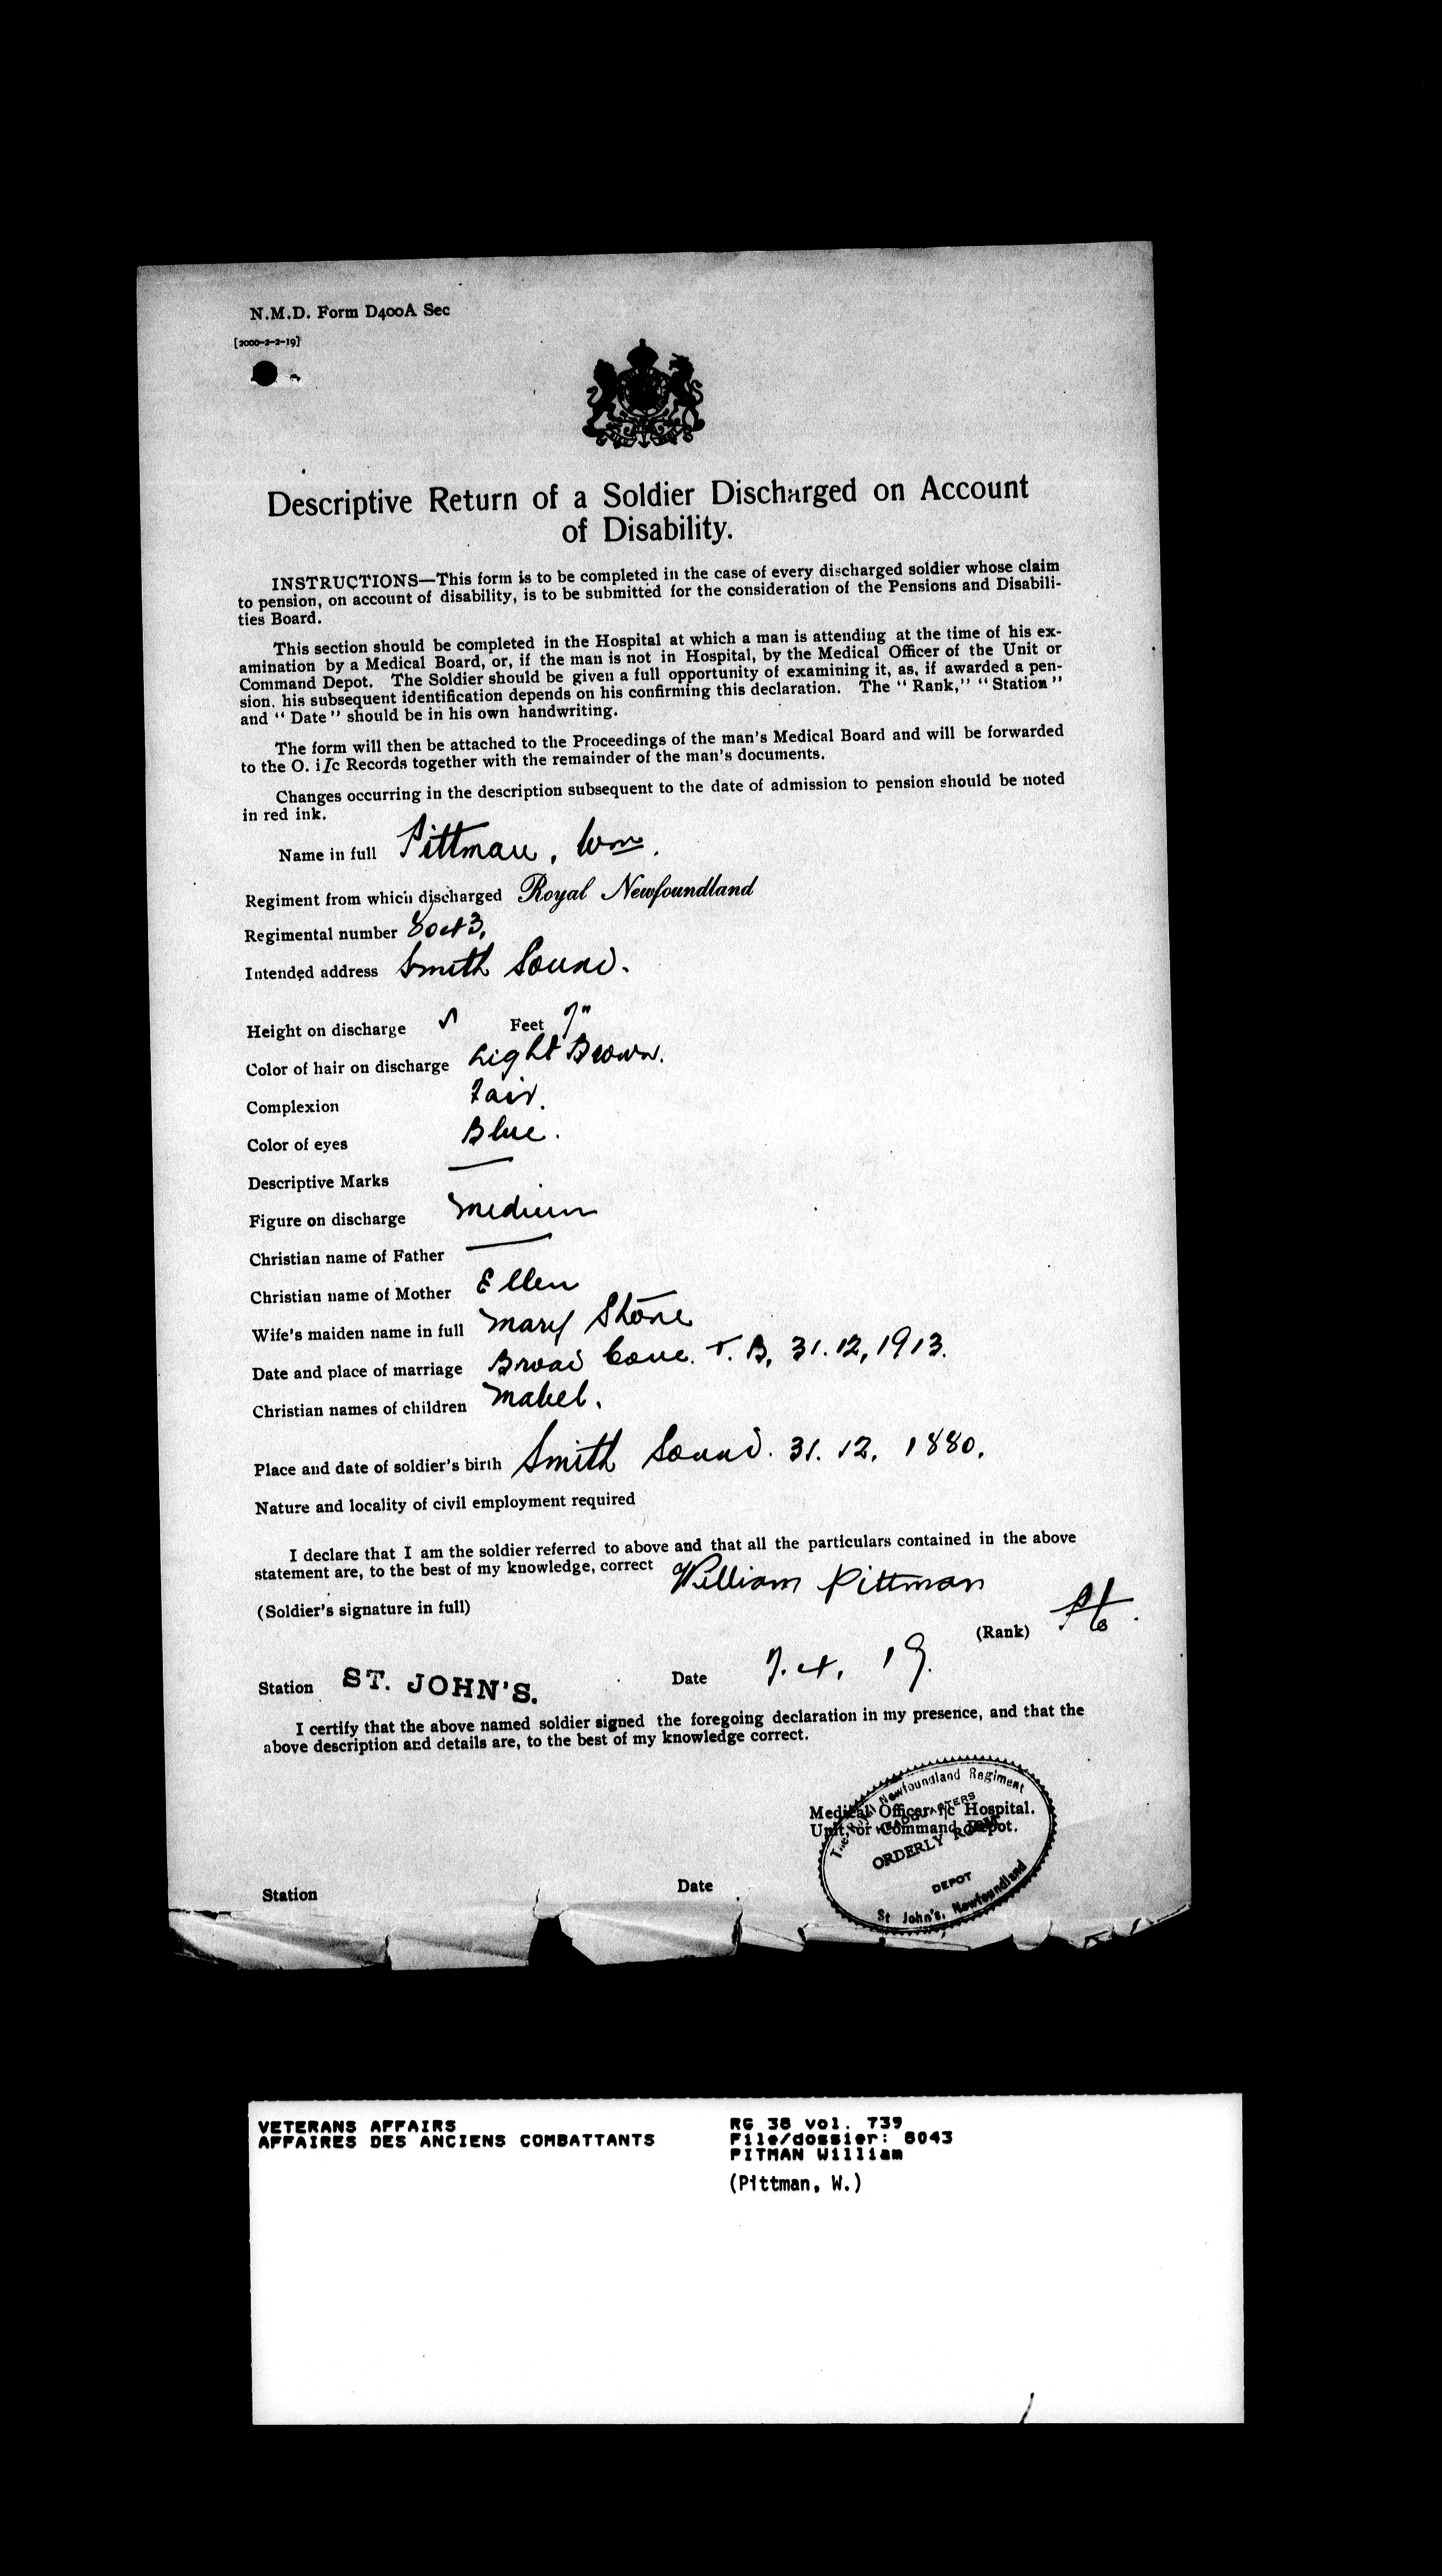 N.M.D. Form D400A Sec
[2000-2-2-19]
Descriptive Return of a Soldier Discharged on Account
of Disability.
INSTRUCTIONS—This form is to be completed in the case of every discharged soldier whose claim
to pension, on account of disability, is to be submitted for the consideration of the Pensions and Disabili-
ties Board.
This section should be completed in the Hospital at which a man is attending at the time of his ex-
amination by a Medical Board, or, if the man is not in Hospital, by the Medical Officer of the Unit or
Command Depot. The Soldier should be given a full opportunity of examining it, as, if awarded a pen-
sion, his subsequent identification depends on his confirming this declaration. The “ Rank,” “ Station ”
and “ Date ” should be in his own handwriting.
The form will then be attached to the Proceedings of the man's Medical Board and will be forwarded
to the O. i/c Records together with the remainder of the man's documents.
Changes occurring in the description subsequent to the date of admission to pension should be noted
in red ink.
Name in full Pittman, Wm.
Regiment from which discharged Royal Newfoundland
Regimental number 8043,
Intended address Smith Sound.
Height on discharge 5 Feet 7"
Color of hair on discharge Light Brown.
Complexion Fair.
Color of eyes Blue.
Descriptive Marks —
Figure on discharge Medium
Christian name of Father —
Christian name of Mother Ellen
Wife's maiden name in full Mary Stone
Date and place of marriage Broad Cove. T. B, 31.12,1913.
Christian names of children Mabel.
Place and date of soldier's birth Smith Sound. 31. 12. 1880.
Nature and locality of civil employment required
I declare that I am the soldier referred to above and that all the particulars contained in the above
statement are, to the best of my knowledge, correct William Pittman
(Soldier's signature in full)
(Rank) Pte.
Station ST. JOHN'S. Date 7. 4. 19.
I certify that the above named soldier signed the foregoing declaration in my presence, and that the
above description and details are, to the best of my knowledge correct.
Medical Officer i/c Hospital.
Unit, or Command Depot.
The Royal Newfoundland Regiment
HEADQUARTERS
ORDERLY ROOM
DEPOT
St John's, Newfoundland
Station Date
VETERANS AFFAIRS RG 38 vol. 739
AFFAIRES DES ANCIENS COMBATTANTS File/dossier: 8043
PITMAN William
(Pittman, W.)